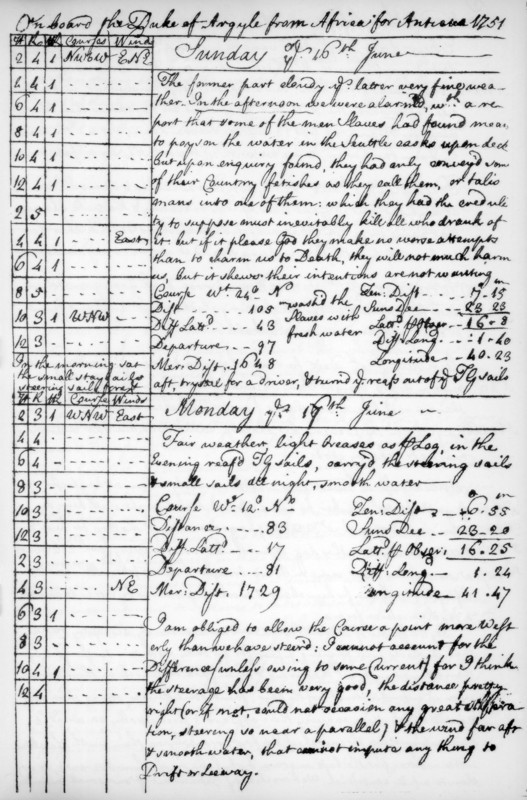 On board the Duke of Argyle from Africa for Antigua 1751
H K fth Courses Winds
Sunday ye 16th June
2 4 1 NWbW ENE
4 4 1
The former part cloudy ye latter very fine wea-
6 4 1
ther. In the afternoon we were alarm'd wth a re-
8 4 1
port that some of the men Slaves had found means
to poyson the water in the Scuttle casks upon deck
10 4 1
but upon enquiry found they had only convey'd some
12 4 1
of their Country fetishes as they call them, or talis-
mans into one of them: which they had the creduli-
2 5
ty to suppose must inevitably kill all who drank of
4 4 1 East
it but if it please God they make no worse attempts
6 4 1
than to charm us to Death, they will not much harm
us, but it shews their intentions are not wanting
8 5
Course Wt 24° No
Zen: Dist 7.15
Dist 105
washed the
Sun's Dec 23.23
10 3 1 WNW
Diff Latd 43
Slaves with
Latd pr Obser 16.8
fresh water
12 3
Departure 97
Diff: Long 1.40
In the morning set
Mer: Dist 1648
Longitude 40.23
the small stay sails
steering sails
aft, trysail for a driver, & turn'd ye reefs out of ye TG sails
H K fth Courses Winds
Monday ye 17th June
2 3 1 WNW East
4 4
Fair weather, light breases as pr Log, in the
6 4
Evening reef'd TG sails, carry'd the steering sails
8 3
& small sails all night, smooth water
10 3
Course Wt 12° No
Zen: Dist 6.55
12 3
Distance 83
Suns Dec 23.20
Diff: Latd 17
Latd pr Obser: 16.25
2 3
Departure 81
Diff: Long 1.24
4 3 NE
Mer: Dist. 1729
Longitude 41.47
6 3 1
I am obliged to allow the Course a point more West
8 3
erly than we have steer'd: I cannot account for the
10 4 1
Difference (unless owing to some Current) for I think
12 4
the steerage has been very good, the distance pretty
right (or if not, could not occasion any great
tion, steering so near a parallel) & the wind far aft
& smooth water, that cannot impute any thing to
Drift or Leeway.